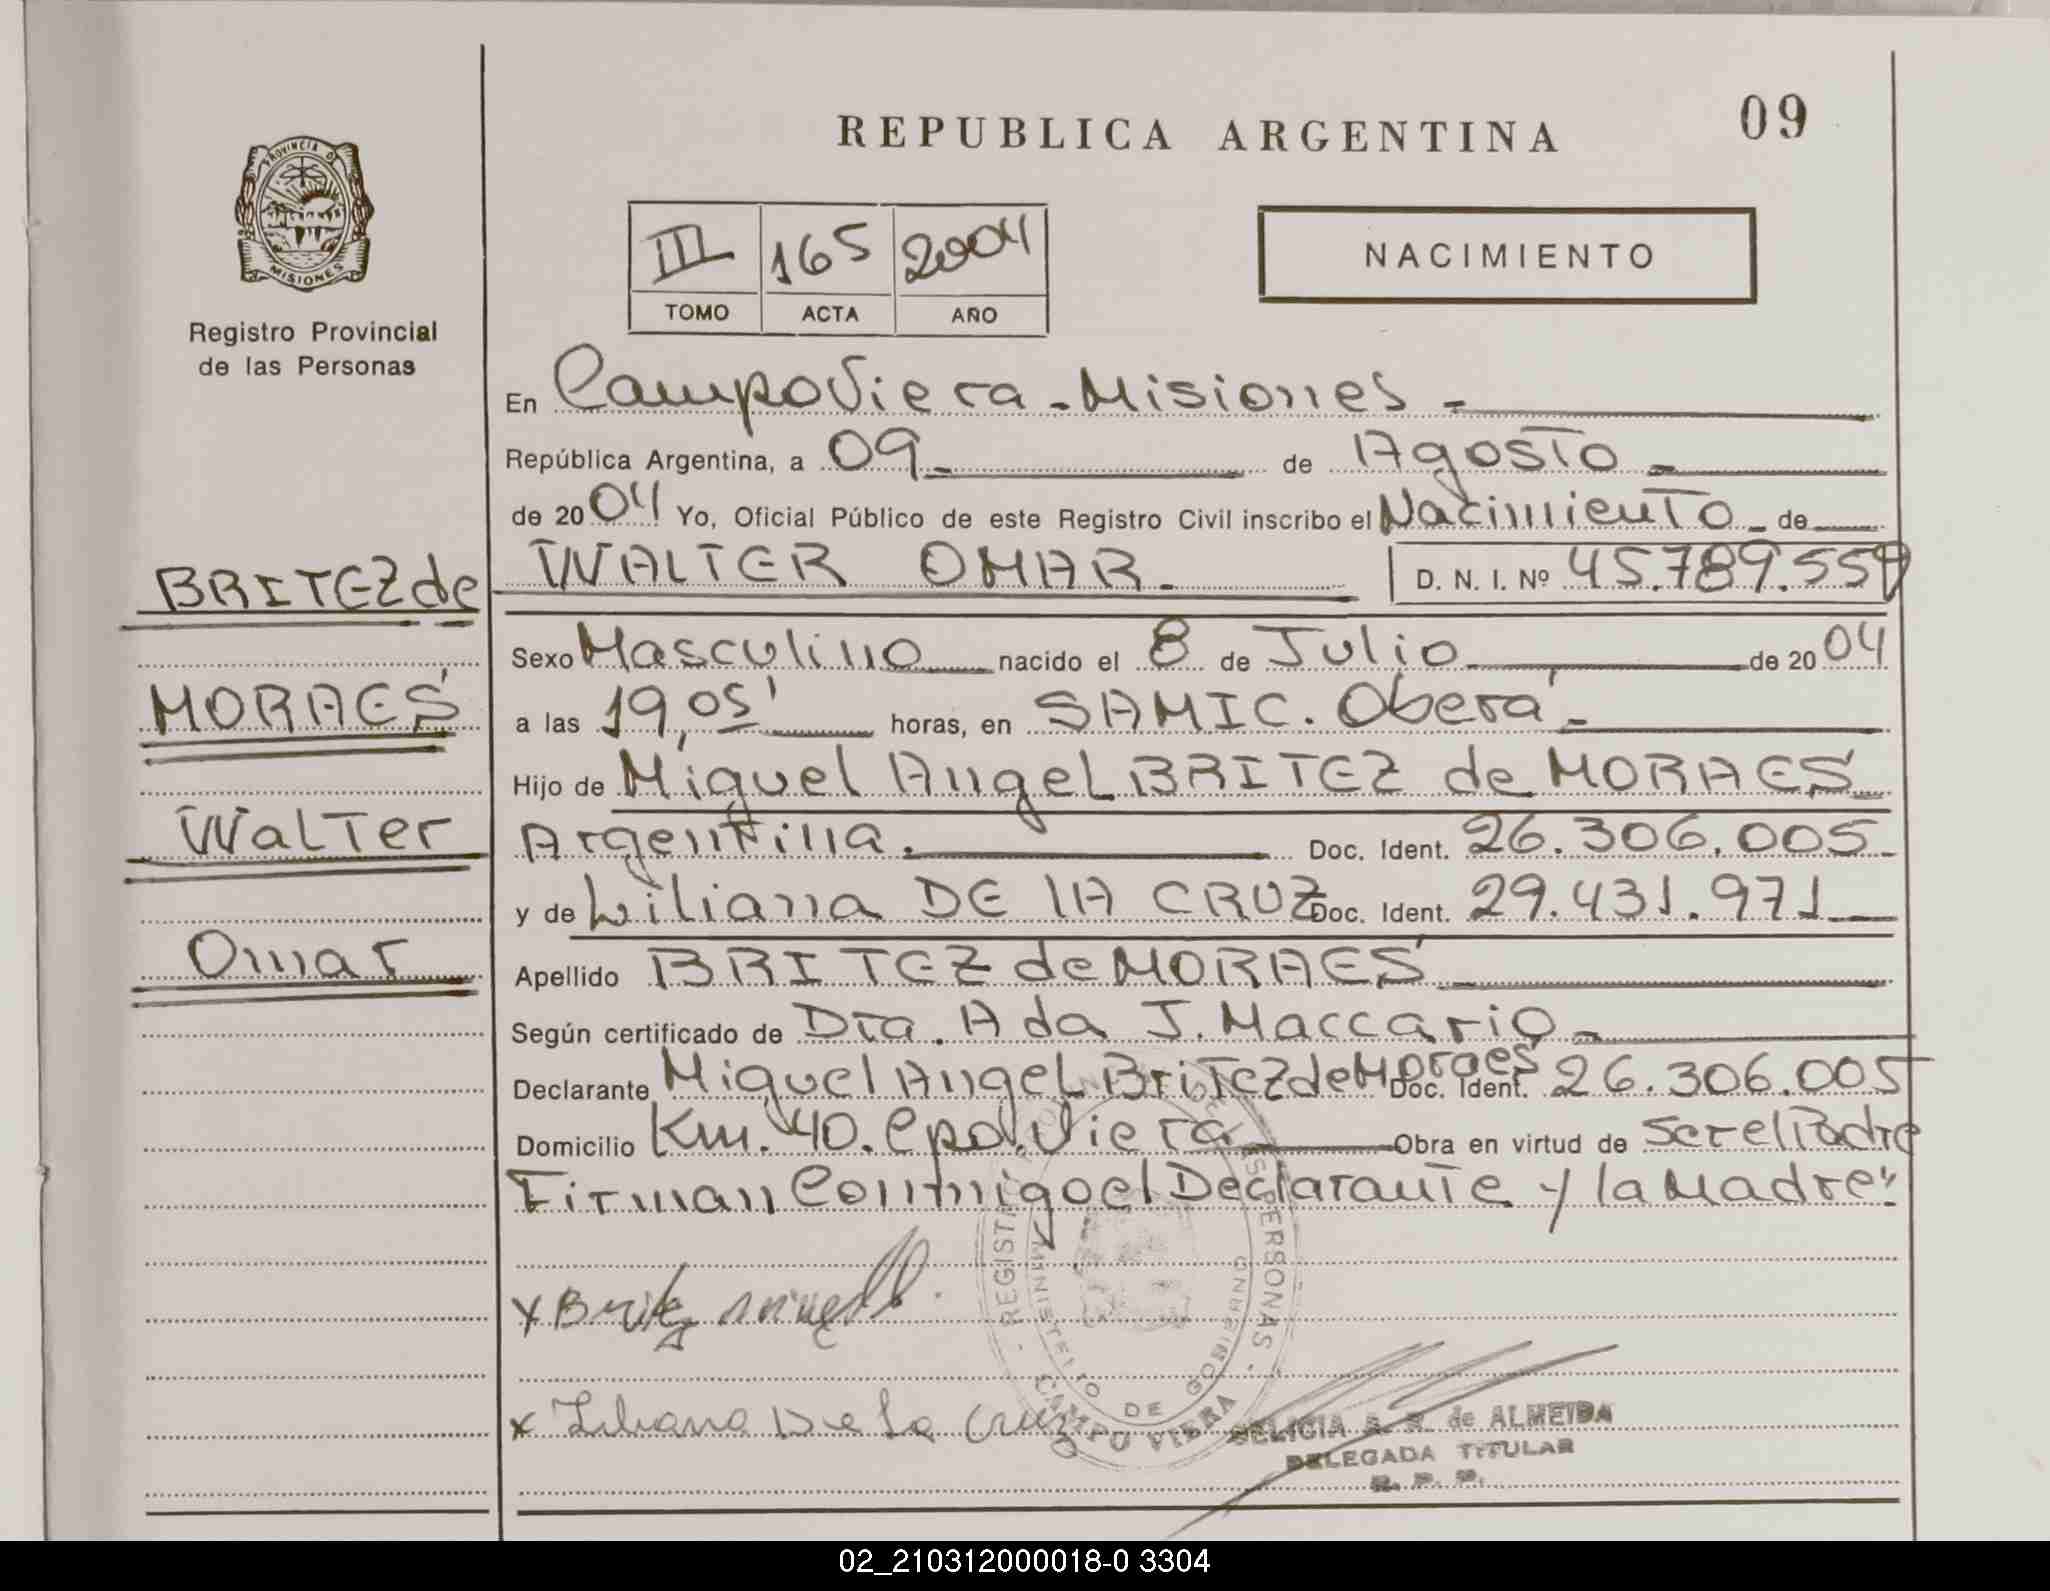 09
REPUBLICA ARGENTINA
PROVINCIA DE
MISIONES
Registro Provincial
de las Personas
III 165 2004
TOMO ACTA AÑO
NACIMIENTO
En Campo Viera - Misiones -
República Argentina, a 09 - de Agosto -
de 2004 Yo, Oficial Público de este Registro Civil inscribo el Nacimiento - de
BRITEZ de
MORAES
Walter
Omar
WALTER OMAR. D. N. I. Nº 45.789.559
Sexo Masculino nacido el 8 de Julio de 2004
a las 19,05' horas, en SAMIC. Oberá -
Hijo de Miguel Angel BRITEZ de MORAES
Argentina. Doc. Ident. 26.306.005
y de Liliana DE LA CRUZ Doc. Ident. 29.431.971
Apellido BRITEZ de MORAES
Según certificado de Dra. Ada J. Maccario -
Declarante Miguel Angel Britez de Moraes Doc. Ident. 26.306.005
Domicilio Km. 40. Cpo. Viera Obra en virtud de Ser el Padre
Firman Conmigo el Declarante y la Madre"
REGISTRO PROVINCIAL DE LAS PERSONAS
MINISTERIO DE GOBIERNO
CAMPO VIERA
x Britez
x Liliana De la Cruz
DELICIA A. R. de ALMEIDA
DELEGADA TITULAR
R. P. P.
02_210312000018-0 3304